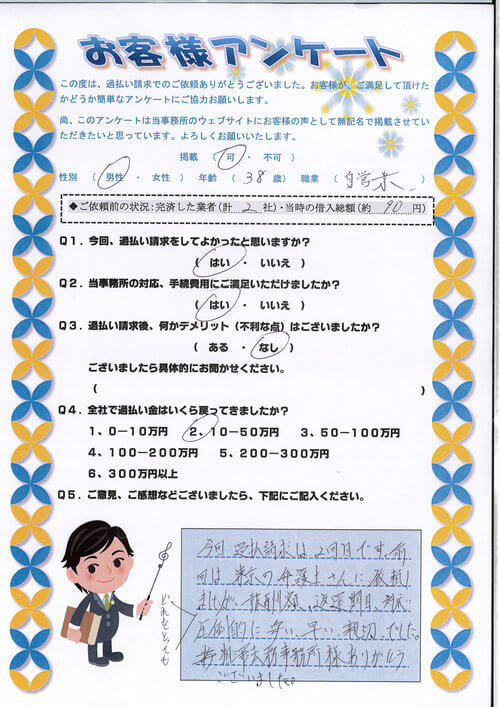 お客様アンケート
この度は、過払い請求でのご依頼ありがとうございました。お客様が、ご満足して頂けた
かどうか簡単なアンケートにご協力お願いします。
尚、このアンケートは当事務所のウェブサイトにお客様の声として無記名で掲載させてい
ただきたいと思っています。よろしくお願いいたします。
掲載 （ 可 ・ 不可 ）
性別 （ 男性 ・ 女性 ） 年齢 （ 38 歳） 職業 （ 自営業 ）
◆ご依頼前の状況：完済した業者（計 2 社）・当時の借入総額（約 90 円）
Q1．今回、過払い請求をしてよかったと思いますか？
（ はい ・ いいえ ）
Q2．当事務所の対応、手続費用にご満足いただけましたか？
（ はい ・ いいえ ）
Q3．過払い請求後、何かデメリット（不利な点）はございましたか？
（ ある ・ なし ）
ございましたら具体的にお聞かせください。
（ ）
Q4．全社で過払い金はいくら戻ってきましたか？
1、0－10万円 2、10－50万円 3、50－100万円
4、100－200万円 5、200－300万円
6、300万円以上
Q5．ご意見、ご感想などございましたら、下記にご記入ください。
今回 過払請求は2回目です。前
回は東京の弁護士さんに依頼し
ましたが、報酬額、返還期日、対応
圧倒的に安い、早い、親切 でした。
事務所様ありがとう
ございました。
どれをとっても